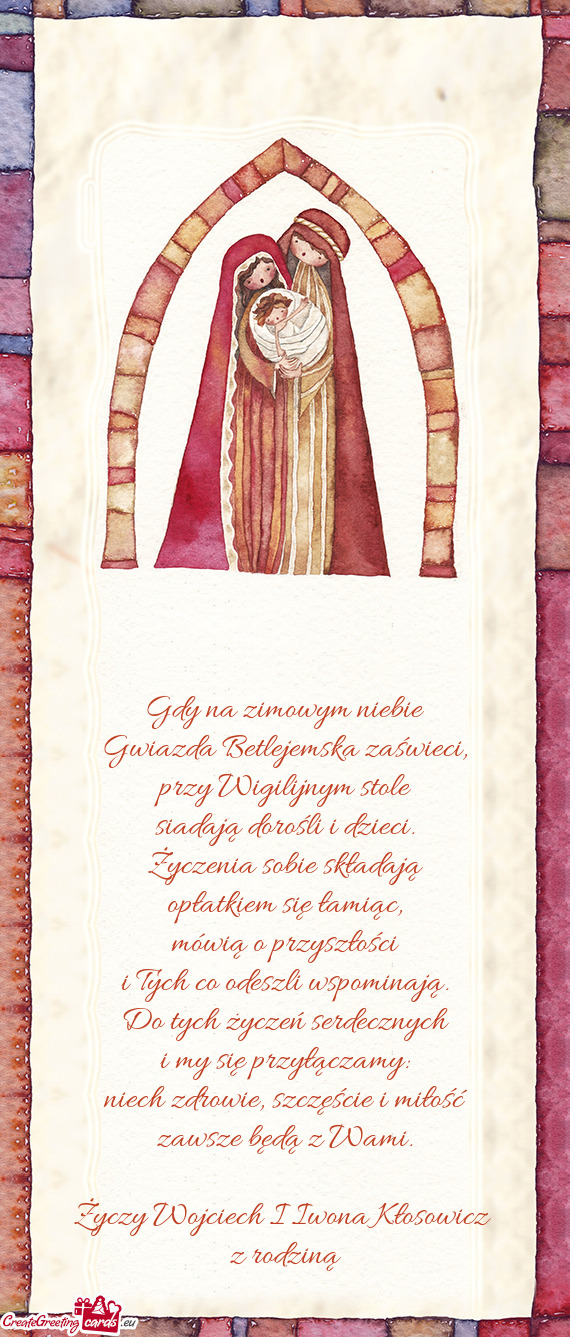 Gdy na zimowym niebie
Gwiazda Betlejemska zaświeci,
przy Wigilijnym stole
siadają dorośli i dzieci.
Życzenia sobie składają
opłatkiem się łamiąc,
mówią o przyszłości
i Tych co odeszli wspominają.
Do tych życzeń serdecznych
i my się przyłączamy:
niech zdrowie, szczęście i miłość
zawsze będą z Wami.
Życzy Wojciech I Iwona Kłosowicz
z rodziną
CreateGreeting cards .eu